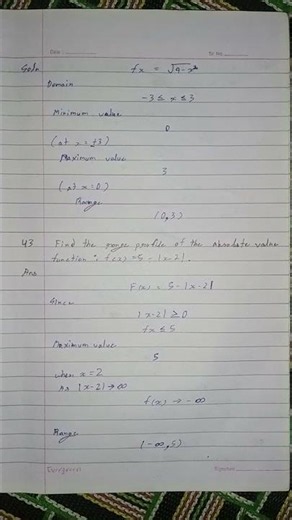 Date
Soln
fx = √9-x²
Domain
-3 ≤ x ≤ 3
Minimum value
0
(at x = ±3)
Maximum value
3
(at x=0)
Range
(0,3)
43 Find the range profile of the absolute value
function : f(x) = 5 - |x-2|.
Ans
F(x) = 5 - |x-2|
Since
|x-2| ≥ 0
fx ≤ 5
Maximum value
5
when x = 2
As |x-2| → ∞
f(x) → -∞
Range
(-∞, 5)